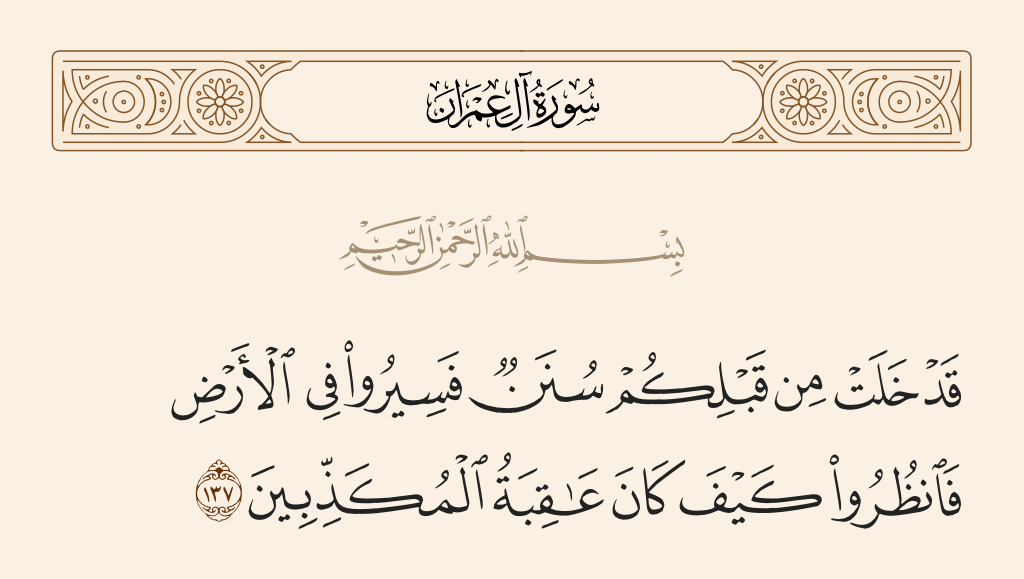 سُورَةُ آلِ عِمْرَان
بِسْمِ ٱللَّهِ ٱلرَّحْمَٰنِ ٱلرَّحِيمِ
قَدْ خَلَتْ مِن قَبْلِكُمْ سُنَنٌ فَسِيرُوا۟ فِى ٱلْأَرْضِ
فَٱنظُرُوا۟ كَيْفَ كَانَ عَـٰقِبَةُ ٱلْمُكَذِّبِينَ ١٣٧